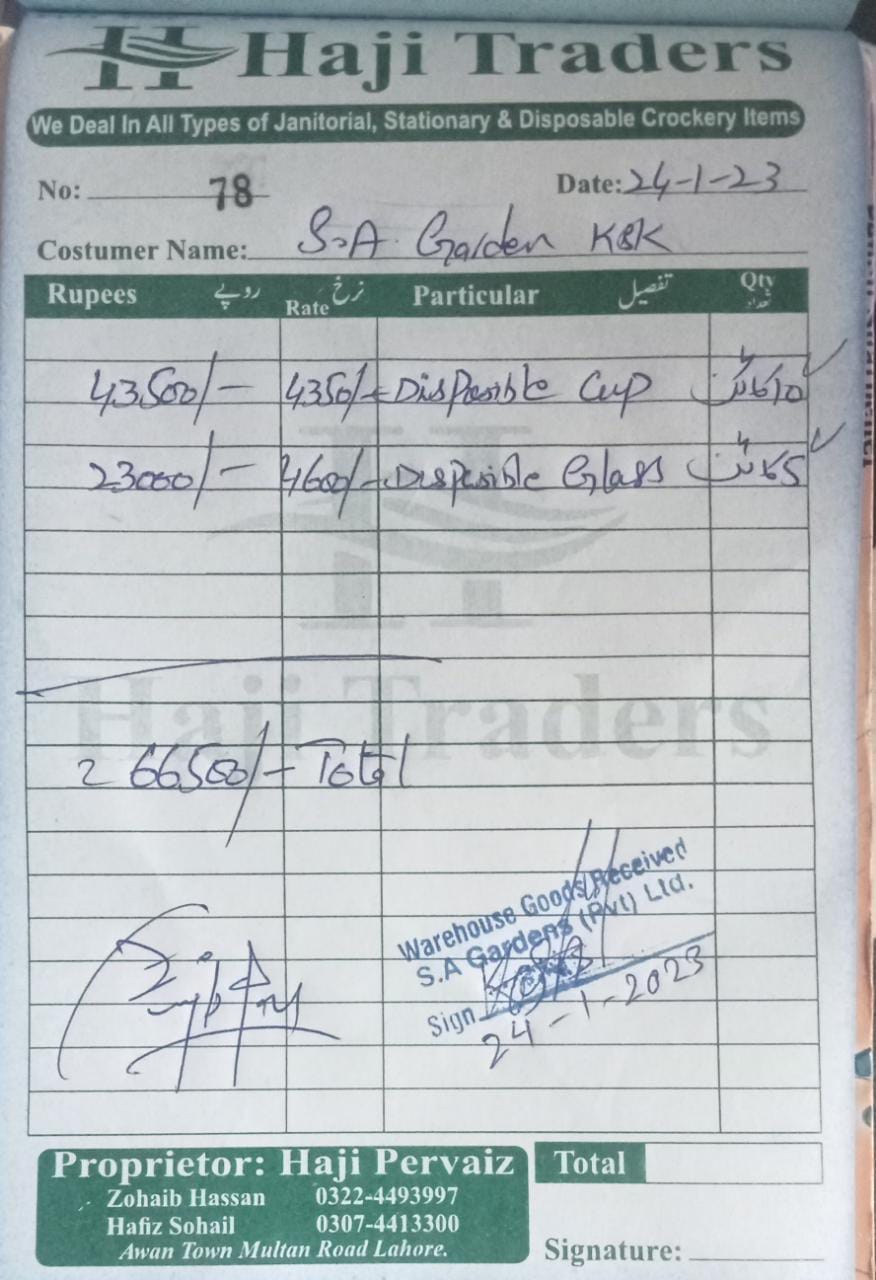 Haji Traders
We Deal In All Types of Janitorial, Stationary & Disposable Crockery Items
No: 78 Date: 24-1-23
Costumer Name: S.A. Garden KBK
Rupees روپے Rate نرخ Particular تفصیل Qty تعداد
43500/- 4350/- Disposible Cup 10 کاٹن
23000/- 4600/- Disposible Glass 5 کاٹن
66500/- Total
Haji Traders
Warehouse Goods Received
S.A Gardens (Pvt) Ltd.
Sign
24-1-2023
Proprietor: Haji Pervaiz
Zohaib Hassan 0322-4493997
Hafiz Sohail 0307-4413300
Awan Town Multan Road Lahore.
Total
Signature: